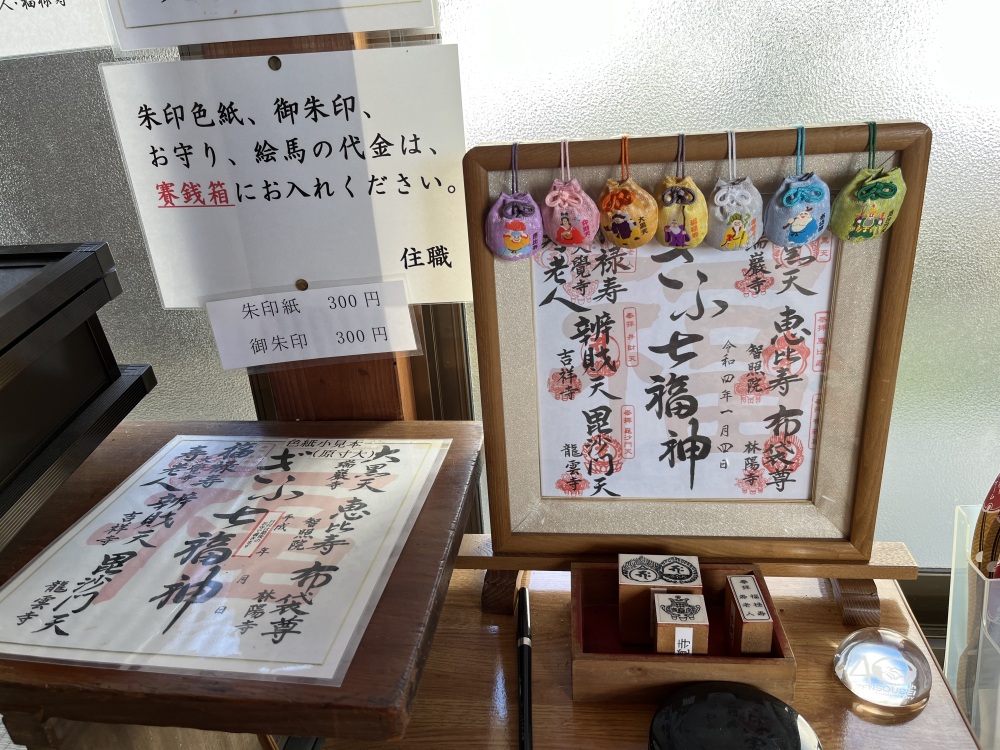 朱印色紙、御朱印、
お守り、絵馬の代金は、
賽銭箱にお入れください。
住職
朱印紙 300円
御朱印 300円
色紙小見本
(原寸大)
大黒天
瑞巌寺
恵比寿
智照院
布袋尊
林陽寺
ぎふ七福神
平成 年 月 日
福禄寿
寿老人
辨財天
吉祥寺
毘沙門天
龍雲寺
黒天
巌寺
恵比寿
智照院
布袋尊
林陽寺
ぎふ七福神
令和四年一月四日
禄寿
老人
大覺寺
辨財天
吉祥寺
毘沙門天
龍雲寺
福禄寿
寿老人